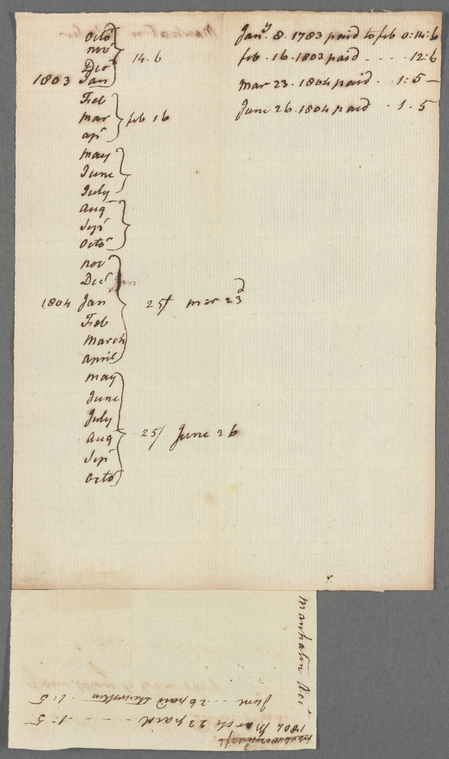 Octor
novr
Decr 14.6
1803 Jan
Feb
Mar feb 16
apr
may
June
July
augt
Sepr
Octor
novr
Decr
1804 Jan 25/ mar 23d
Feb
March
april
may
June
July
aug 25/ June 26
Sepr
Octor
Jany. 8. 1783 paid to feb 0:14:6
feb. 16. 1803 paid - - - - 12:6
mar 23. 1804 paid - 1:5 -
June 26. 1804 paid - 1. 5
Manhatin
1804 March 23 paid - - 1:5
June ... 26 paid 1:5